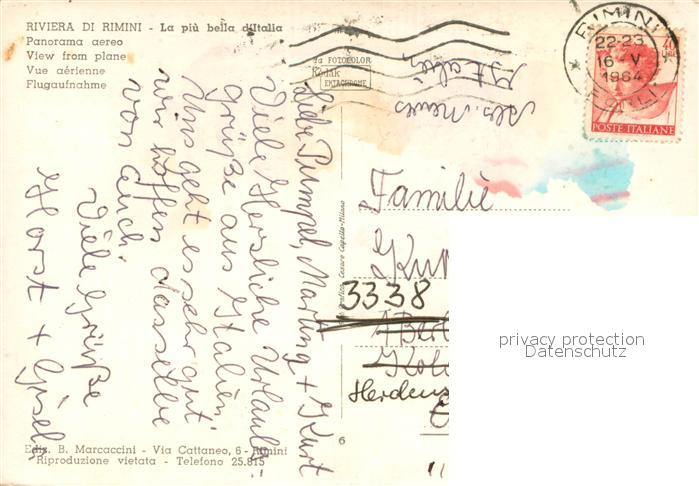 RIVIERA DI RIMINI - La più bella d'Italia
Panorama aereo
View from plane
Vue aérienne
Flugaufnahme
da FOTOCOLOR
Kodak
EKTACHROME
RIMINI
22-23
16 V
1964
FORLI
40
POSTE ITALIANE
Liebe Pumpel, Martina + Kurt
Viele Herzliche Urlaubs
grüße aus Italien
Uns geht es sehr gut
wir hoffen dasselbe
von auch.
Viele Grüße
Horst + Gisela
Italien
Familie
3338
1 Berl
Köln
Cesare Capello-Milano
6
privacy protection
Datenschutz
Ediz. B. Marcaccini - Via Cattaneo, 6 - Rimini
Riproduzione vietata - Telefono 25.815